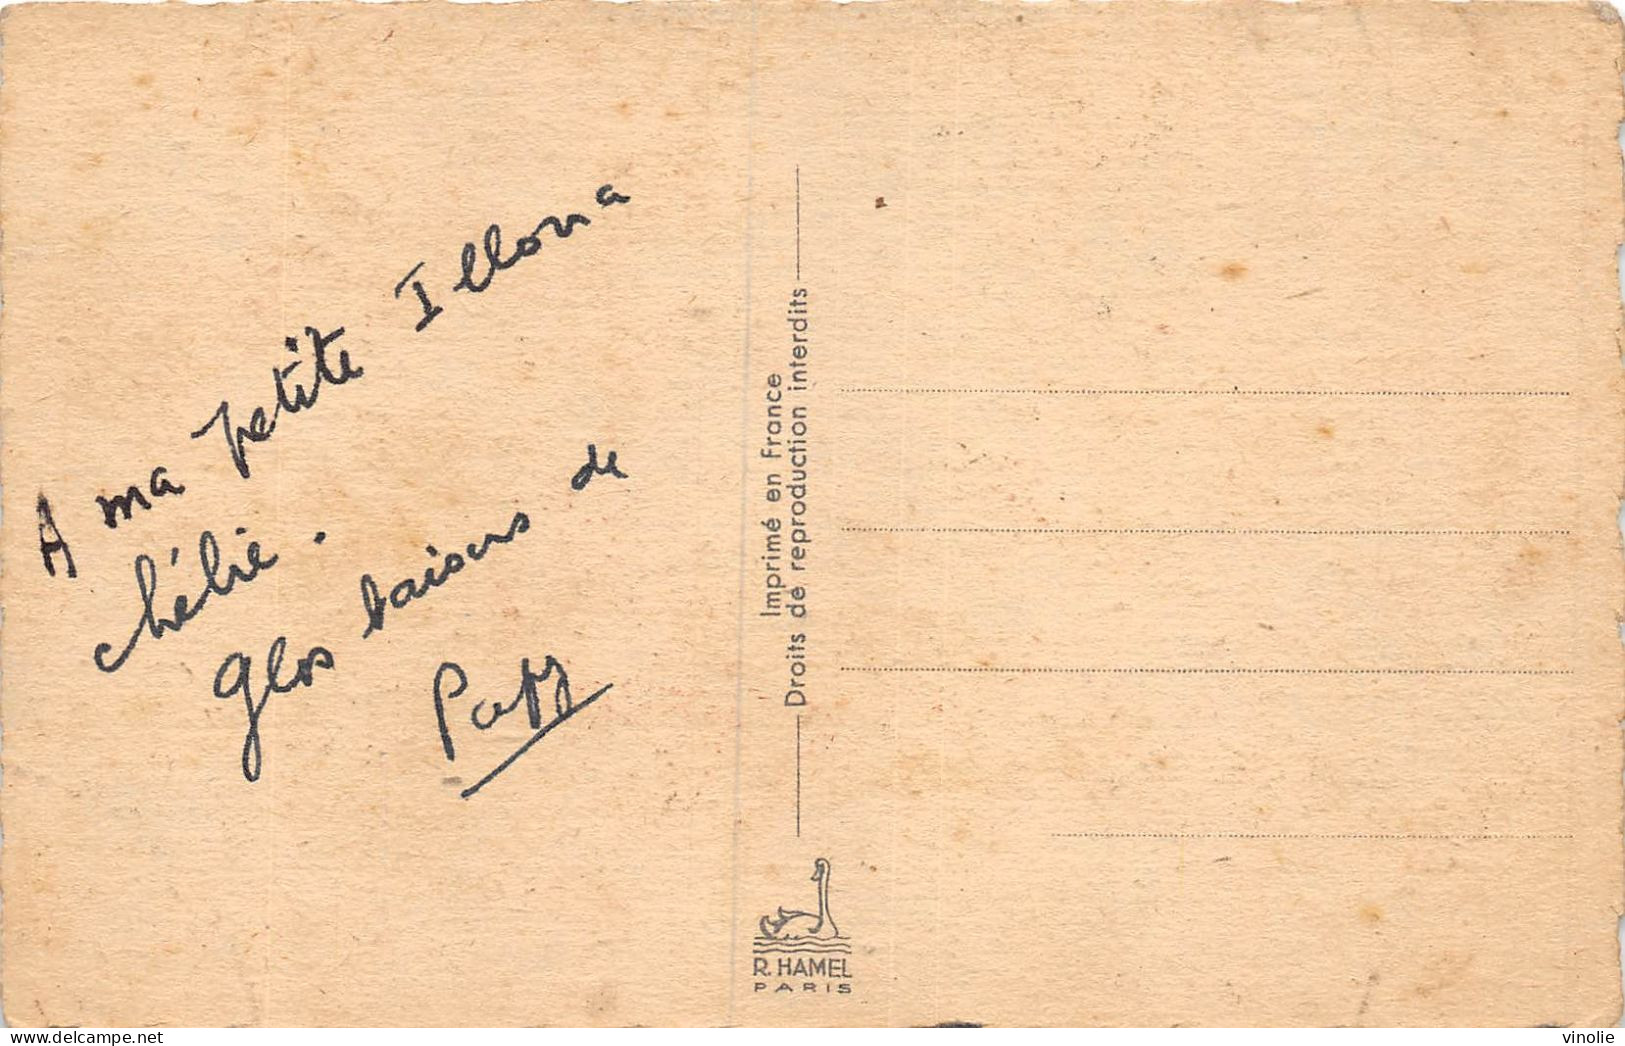 A ma petite Illona
chérie.
Gros baisers de
Papy
Imprimé en France
Droits de reproduction interdits
R. HAMEL
PARIS
vinolie